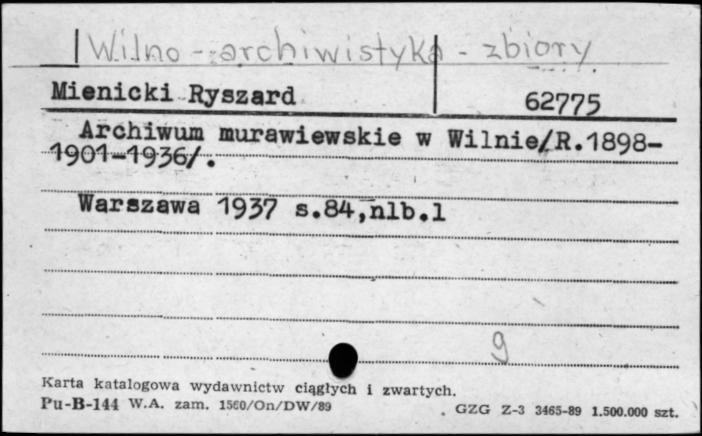 Wilno - archiwistyka - zbiory
Mienicki Ryszard 62775
Archiwum murawiewskie w Wilnie/R.1898-
1901-1936/.
Warszawa 1937 s.84,nlb.1
9
Karta katalogowa wydawnictw ciągłych i zwartych.
Pu-B-144 W.A. zam. 1560/On/DW/89 GZG Z-3 3465-89 1.500.000 szt.